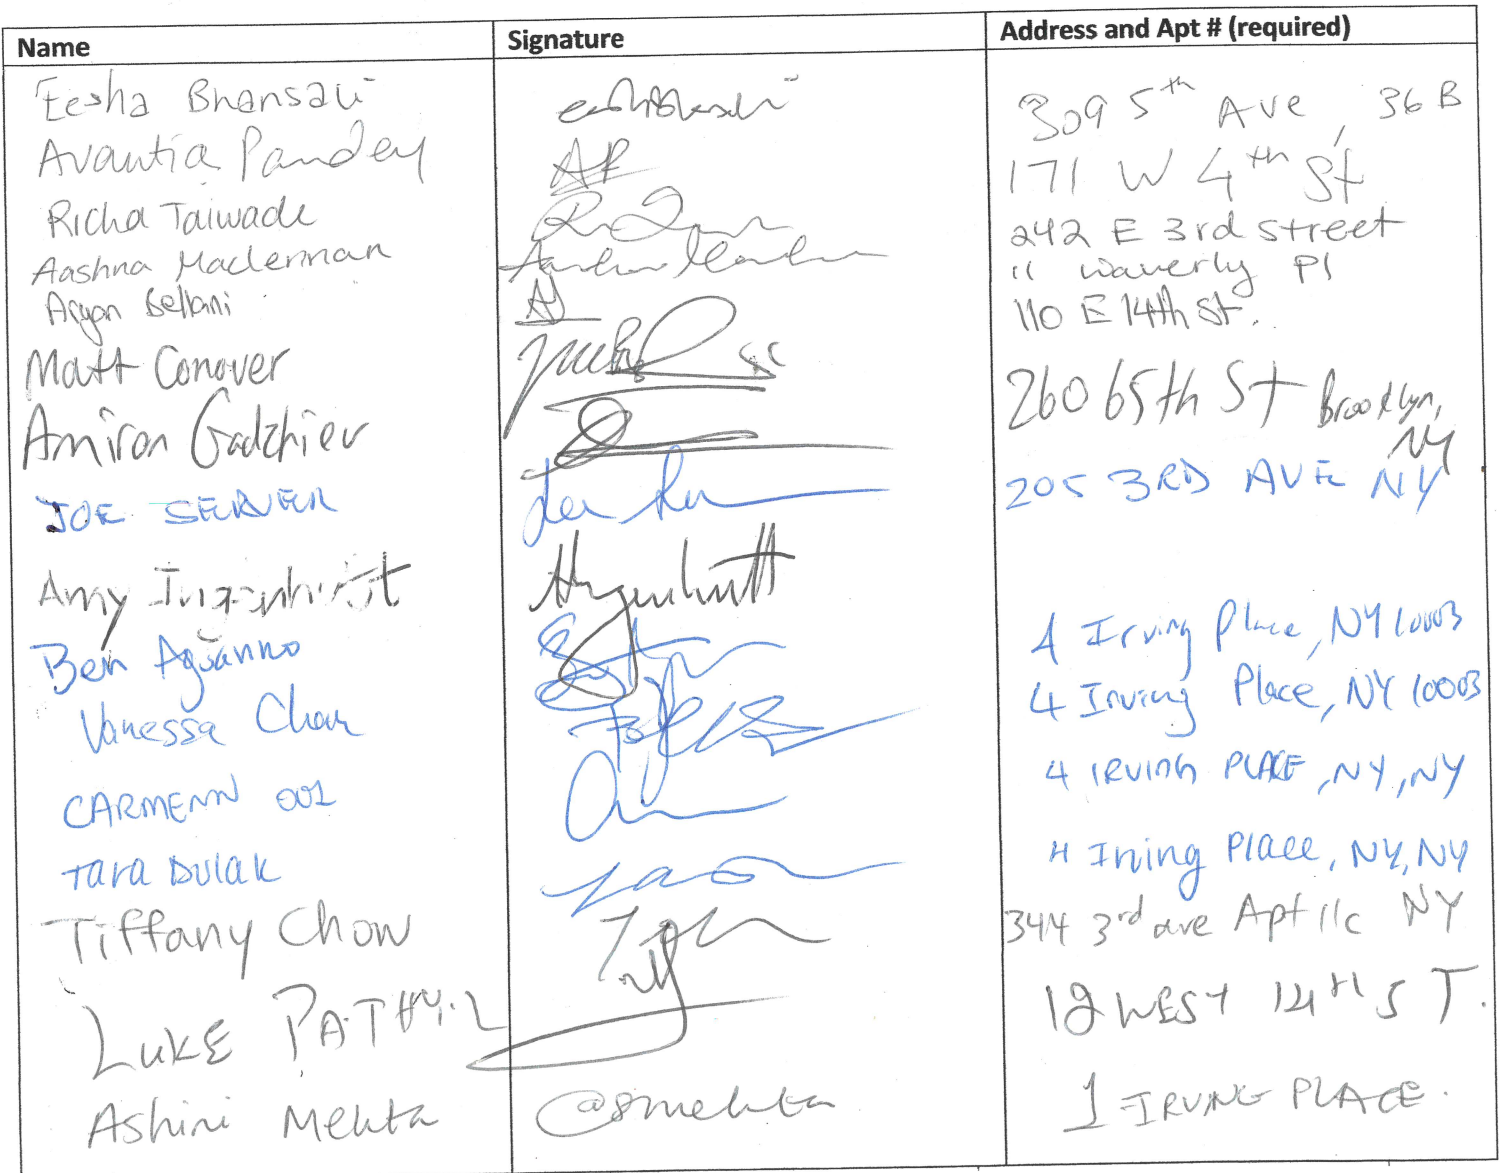 Name Signature Address and Apt # (required)
Eesha Bhansali 309 5th Ave, 36B
Avantia Pandey AP 171 W 4th St
Richa Taiwade 242 E 3rd Street
Aashna Maclennan 11 Waverly Pl
Aryan Bellani 110 E 14th St.
Matt Conover
Amiran Gadzhiev 260 65th St Brooklyn, NY
JOE SERVER 205 3RD AVE NY
Amy
Ben Aguanno 4 Irving Place, NY 10003
Vanessa Chan 4 Irving Place, NY 10003
CARMENN 001 4 IRVING PLACE, NY, NY
Tara DULAK 4 Irving Place, NY, NY
Tiffany Chow 344 3rd ave Apt 11c NY
LUKE 12 WEST 14TH ST.
Ashini Mehta @smehta 1 IRVING PLACE.